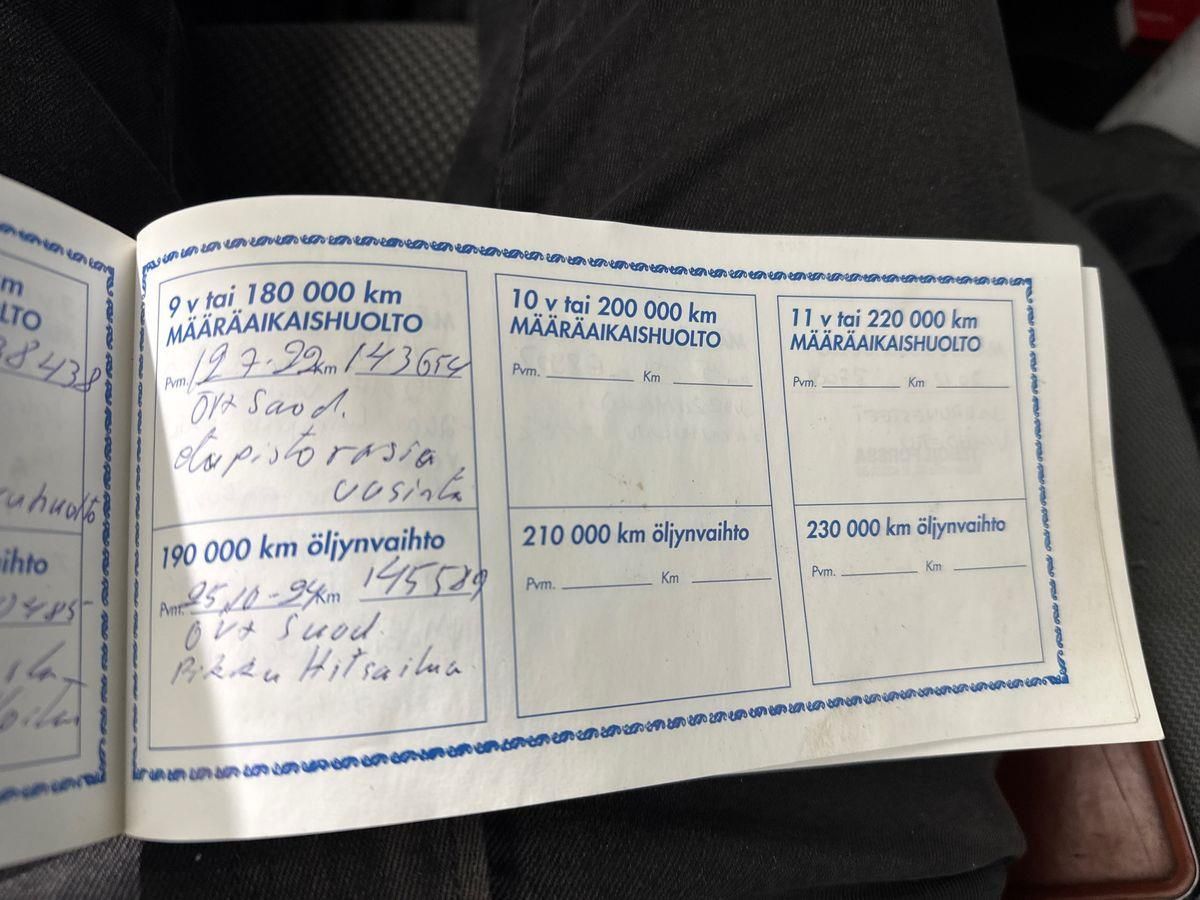 m
LTO
38438
uhuolto
ihto
485
9 v tai 180 000 km
MÄÄRÄAIKAISHUOLTO
Pvm. 12 7-22 Km 143654
ÖV+ Suod.
pistorasia
uusinta
190 000 km öljynvaihto
Pvm. 25.10-24 Km 145589
ÖV+ Suod.
Pikku Hitsailua
10 v tai 200 000 km
MÄÄRÄAIKAISHUOLTO
Pvm. Km
210 000 km öljynvaihto
Pvm. Km
11 v tai 220 000 km
MÄÄRÄAIKAISHUOLTO
Pvm. Km
230 000 km öljynvaihto
Pvm. Km